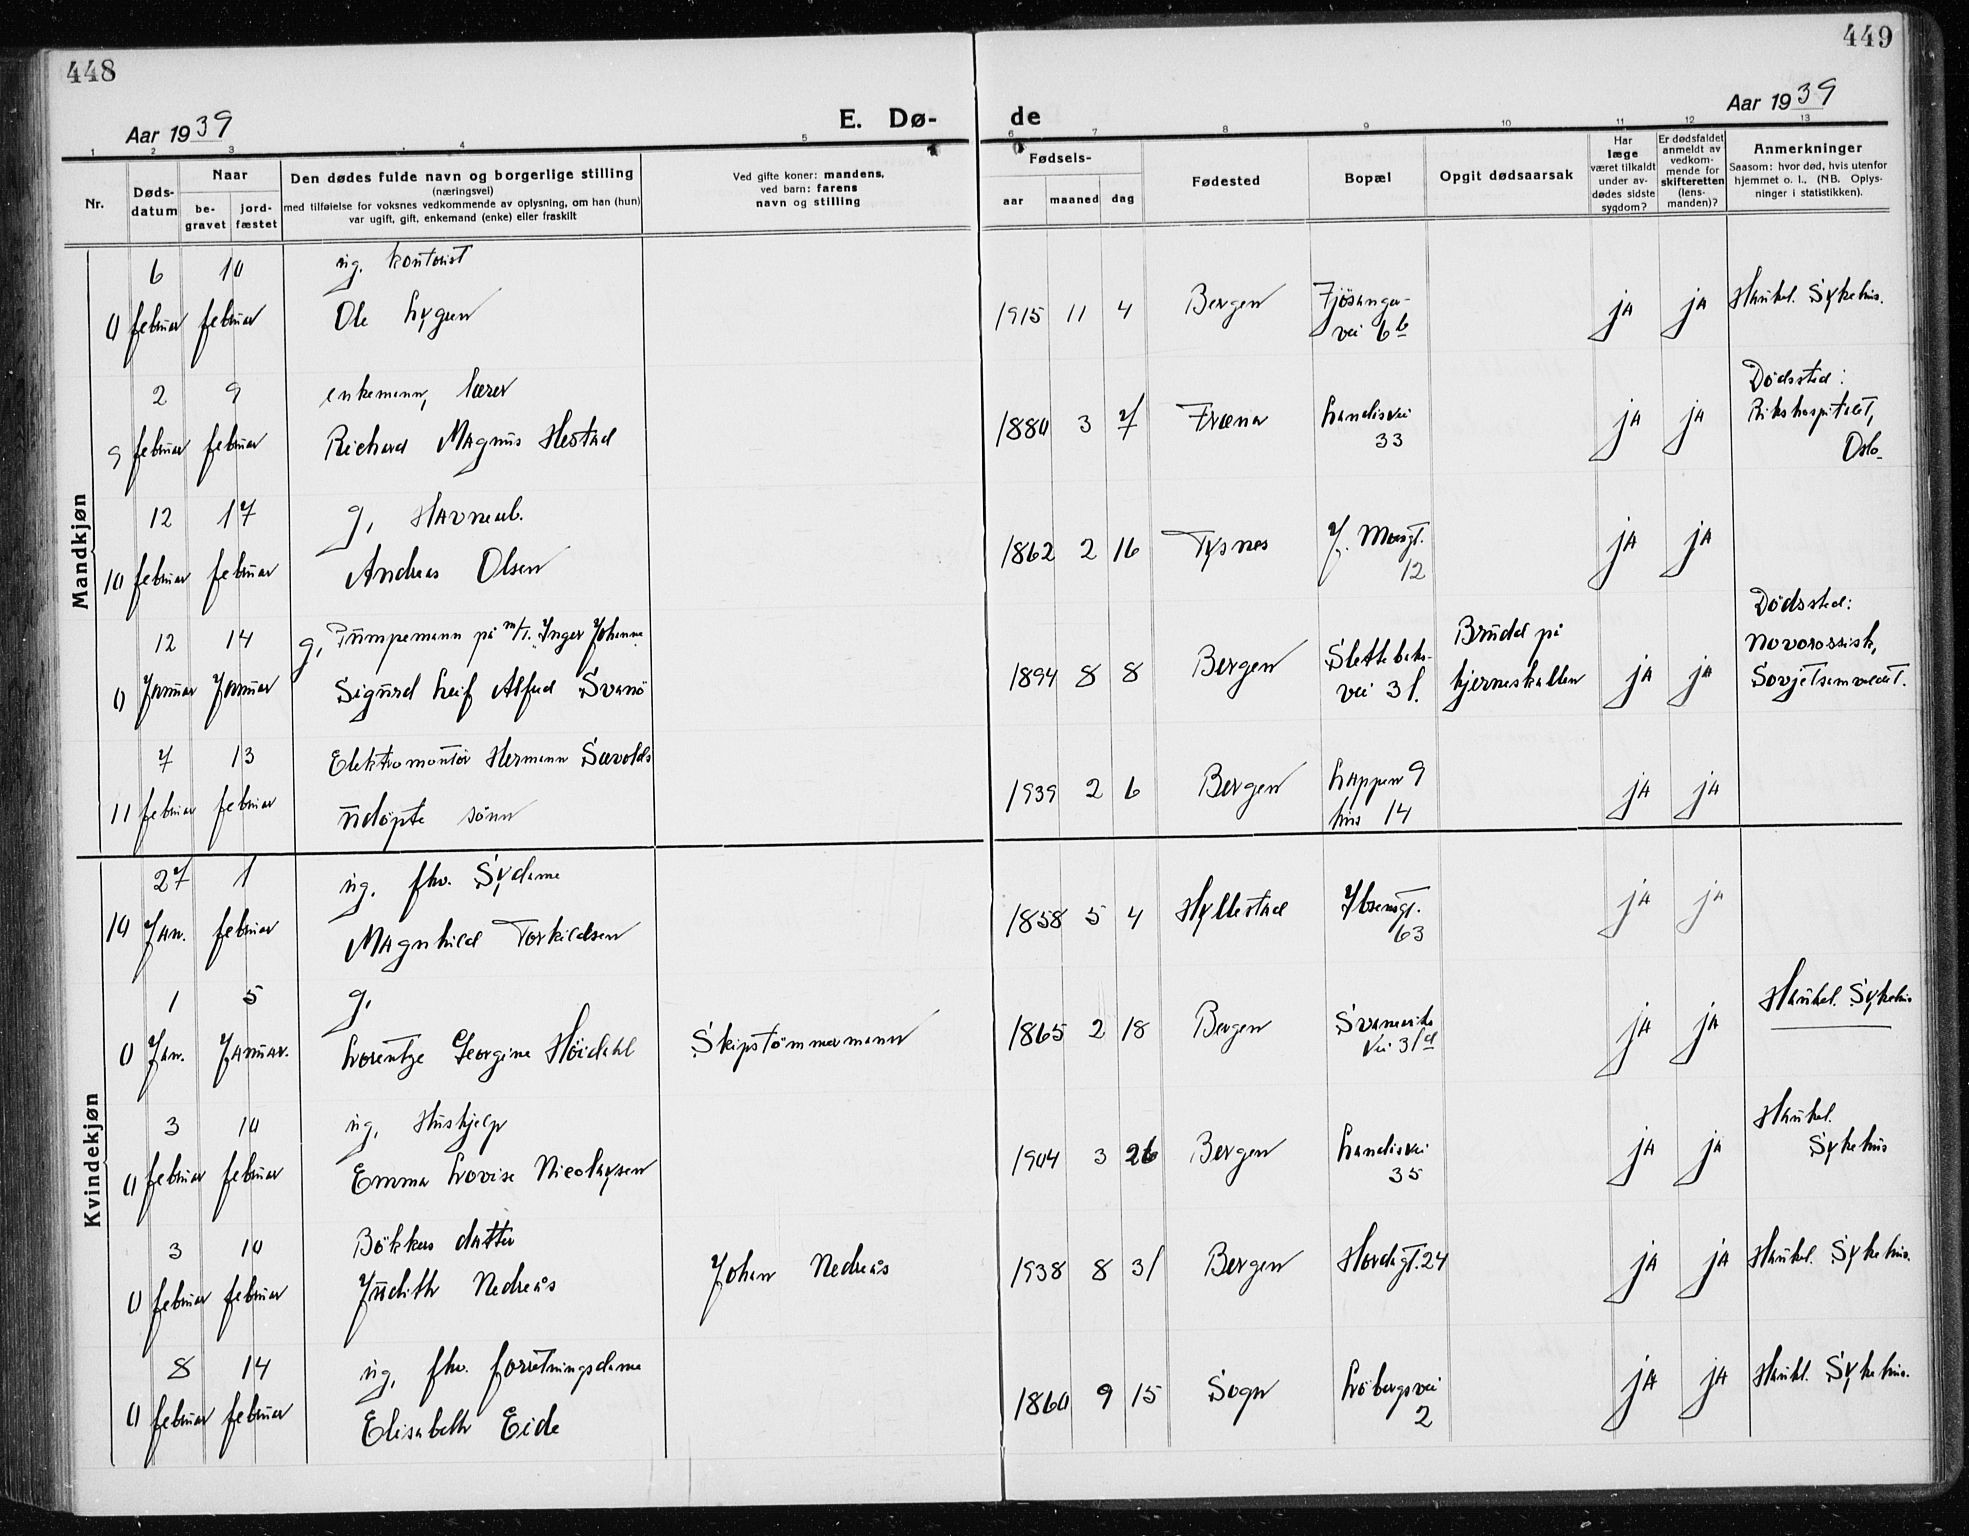 448
449
Aar 1939
E. Dø-
de
Aar 1939
1 2 3 4 5 6 7 8 9 10 11 12 13
Nr.
Døds-
datum
Naar
be-
gravet
jord-
fæstet
Den dødes fulde navn og borgerlige stilling
(næringsvei)
med tilføielse for voksnes vedkommende av oplysning, om han (hun)
var ugift, gift, enkemand (enke) eller fraskilt
Ved gifte koner: mandens,
ved barn: farens
navn og stilling
Fødsels-
aar maaned dag
Fødested
Bopæl
Opgit dødsaarsak
Har
læge
været tilkaldt
under av-
dødes sidste
sygdom?
Er dødsfaldet
anmeldt av
vedkom-
mende for
skifteretten
(lens-
manden)?
Anmerkninger
Saasom: hvor død, hvis utenfor
hjemmet o. l., (NB. Oplys-
ninger i statistikken).
Mandkjøn
6 10 ug. kontorist
0 februar februar Ole Lygren 1915 11 4 Bergen Fjösanger-
vei 6b ja ja Haukel. Sykehus.
2 9 enkemann, lærer
9 februar februar Richard Magnus Hestad 1880 3 7 Fræna Landåsvei
33 ja ja Dödssted:
Rikshospitalet,
Oslo
12 17 g, Havnearb.
10 februar februar Andreas Olsen 1862 2 16 Tysnes
12 ja ja
12 14 g, Pumpemann på m/t. "Inger Johanne"
0 Januar Januar Sigurd Leif Alfred Svanö 1894 8 8 Bergen Slettebaks-
vei 31. Brudd på
hjerneskallen ja ja Dödssted:
Novorossisk,
Sovjetsamveldet.
7 13 Elektromontör Hermann Sævolds
11 februar februar udöpte sönn 1939 2 6 Bergen Lappen 9
hus 14 ja ja
Kvindekjøn
27 1 ug. fhv. Sydame
10 Jan. februar Magnhild Torkildsen 1858 5 4 Hyllestad Ibsensgt.
63 ja ja
1 5 g,
0 Jan. Januar. Lorentze Georgine Höidahl Skipstömmermann 1865 2 18 Bergen Svaneviks
vei 31d ja ja Haukel. Sykehus
3 10 ug, Hushjelp
0 februar februar Emma Lovise Nicolaysen 1904 3 26 Bergen Landåsvei
35 ja ja Haukel.
Sykehus
3 10 Bökkers datter
0 februar februar Judith Nedreås Johan Nedreås 1938 8 31 Bergen Hordagt. 24 ja ja Haukel. Sykehus.
8 14 ug, fhv. forretningsdame
0 februar februar Elisabeth Eide 1860 9 15 Sogn Löbergsvei
2 ja ja Haukl. Sykehus.